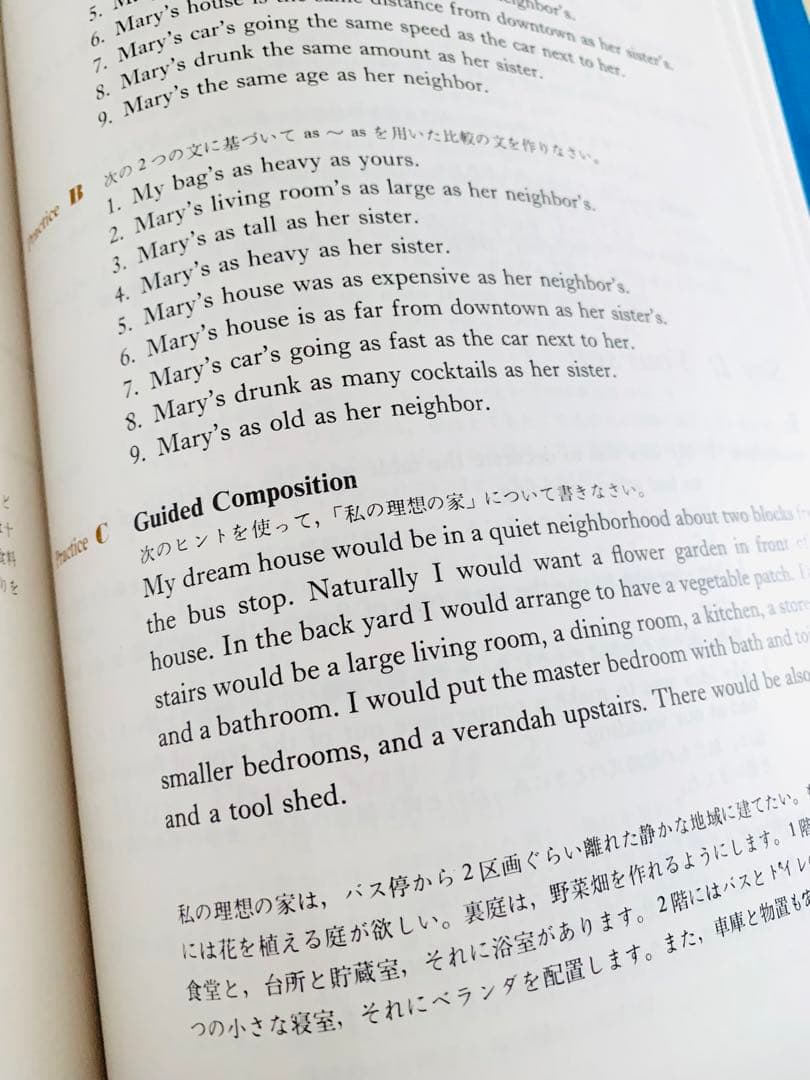 5.
6. Mary's house is the same distance from downtown as her sister's.
7. Mary's car's going the same speed as the car next to her.
8. Mary's drunk the same amount as her sister.
9. Mary's the same age as her neighbor.
Practice B 次の2つの文に基づいて as ～ as を用いた比較の文を作りなさい。
1. My bag's as heavy as yours.
2. Mary's living room's as large as her neighbor's.
3. Mary's as tall as her sister.
4. Mary's as heavy as her sister.
5. Mary's house was as expensive as her neighbor's.
6. Mary's house is as far from downtown as her sister's.
7. Mary's car's going as fast as the car next to her.
8. Mary's drunk as many cocktails as her sister.
9. Mary's as old as her neighbor.
Practice C Guided Composition
次のヒントを使って，「私の理想の家」について書きなさい。
My dream house would be in a quiet neighborhood about two blocks
the bus stop. Naturally I would want a flower garden in front
house. In the back yard I would arrange to have a vegetable patch.
stairs would be a large living room, a dining room, a kitchen, a
and a bathroom. I would put the master bedroom with bath and
smaller bedrooms, and a verandah upstairs. There would be also
and a tool shed.
私の理想の家は，バス停から2区画ぐらい離れた静かな地域に建てたい。
には花を植える庭が欲しい。裏庭は，野菜畑を作れるようにします。1階
食堂と，台所と貯蔵室，それに浴室があります。2階にはバスとトイレ
つの小さな寝室，それにベランダを配置します。また，車庫と物置も